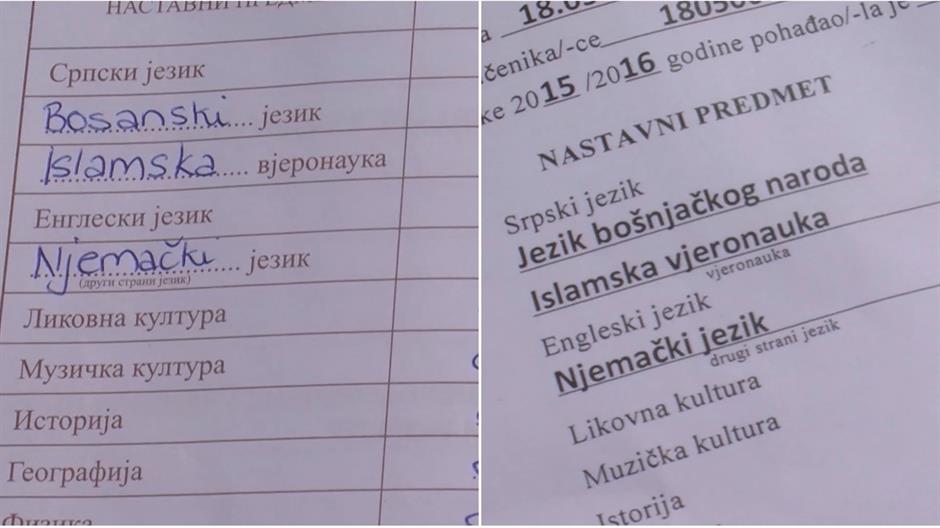 НАСТАВНИ
Српски језик
Bosanski.... језик
Islamska..... вјеронаука
Енглески језик
Njemački.... језик
(други страни језик)
Ликовна култура
Музичка култура
Историја
Географија
Физика
а 18.0
180500
čenika/-ce
ke 2015 /2016 godine pohađao/-la je
NASTAVNI PREDMET
Srpski jezik
Jezik bošnjačkog naroda
Islamska vjeronauka
vjeronauka
Engleski jezik
Njemački jezik
drugi strani jezik
Likovna kultura
Muzička kultura
Istorija